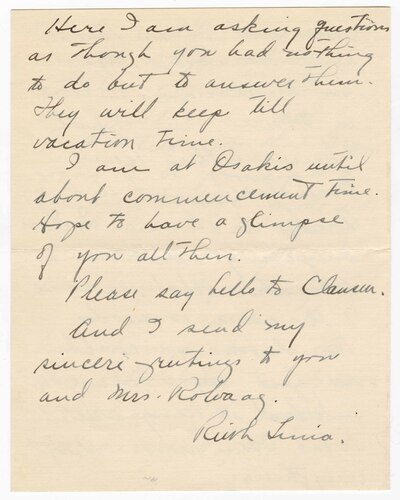 Here I am asking questions
as though you had nothing
to do but to answer them.
They will keep till
vacation time.
I am at Osakis until
about commencement time.
Hope to have a glimpse
of you all then.
Please say hello to Clausen.
And I send my
sincere greetings to you
and Mrs. Rolvaag.
Ruth